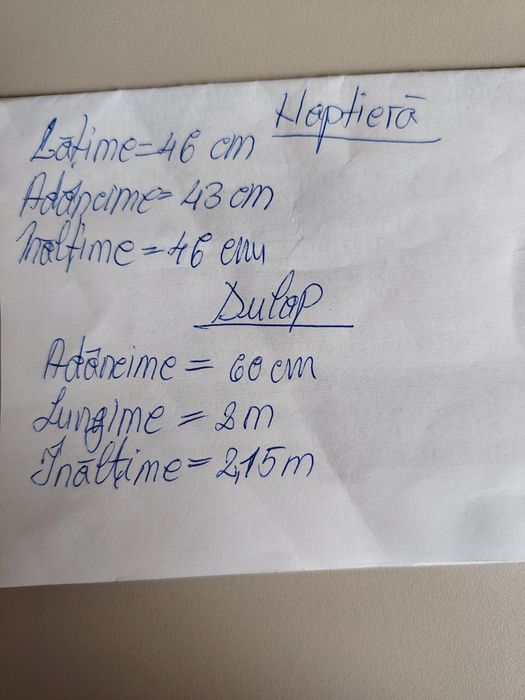 Noptieră
Lățime = 46 cm
Adâncime = 43 cm
Înălțime = 46 cm
Dulap
Adâncime = 60 cm
Lungime = 2 m
Înălțime = 2,15 m